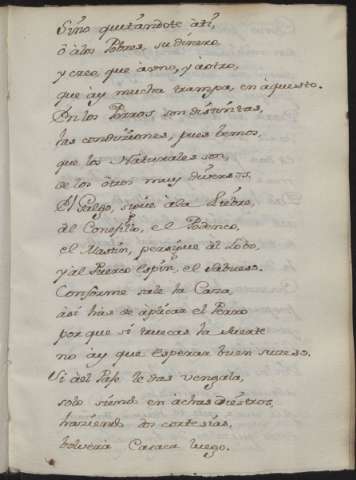 Sino quitándote atí,
ò àlos Pobres, su dinero
y creo, que àcono, y àotro,
que ày mucha trampa, en àquesto.
En los Perros, son distintas,
las condiziones, pues bemos,
que los Naturales son,
de los òtros muy diversos.
El Galgo, sigue àla Liebre,
al Conejillo, el Podenco,
el Mastin, persigue àl Lobo,
y àl Puerco Espin, el Sabueso.
Conforme sale la Caza,
àsi hàs de àplicar el Perro
por que si truecas la Suerte
no ày que esperar buen suceso.
Si àel Paso le das vengala,
solo siendo en àchas diestros,
haziendo dos cortesías,
bolverà Casaca luego.